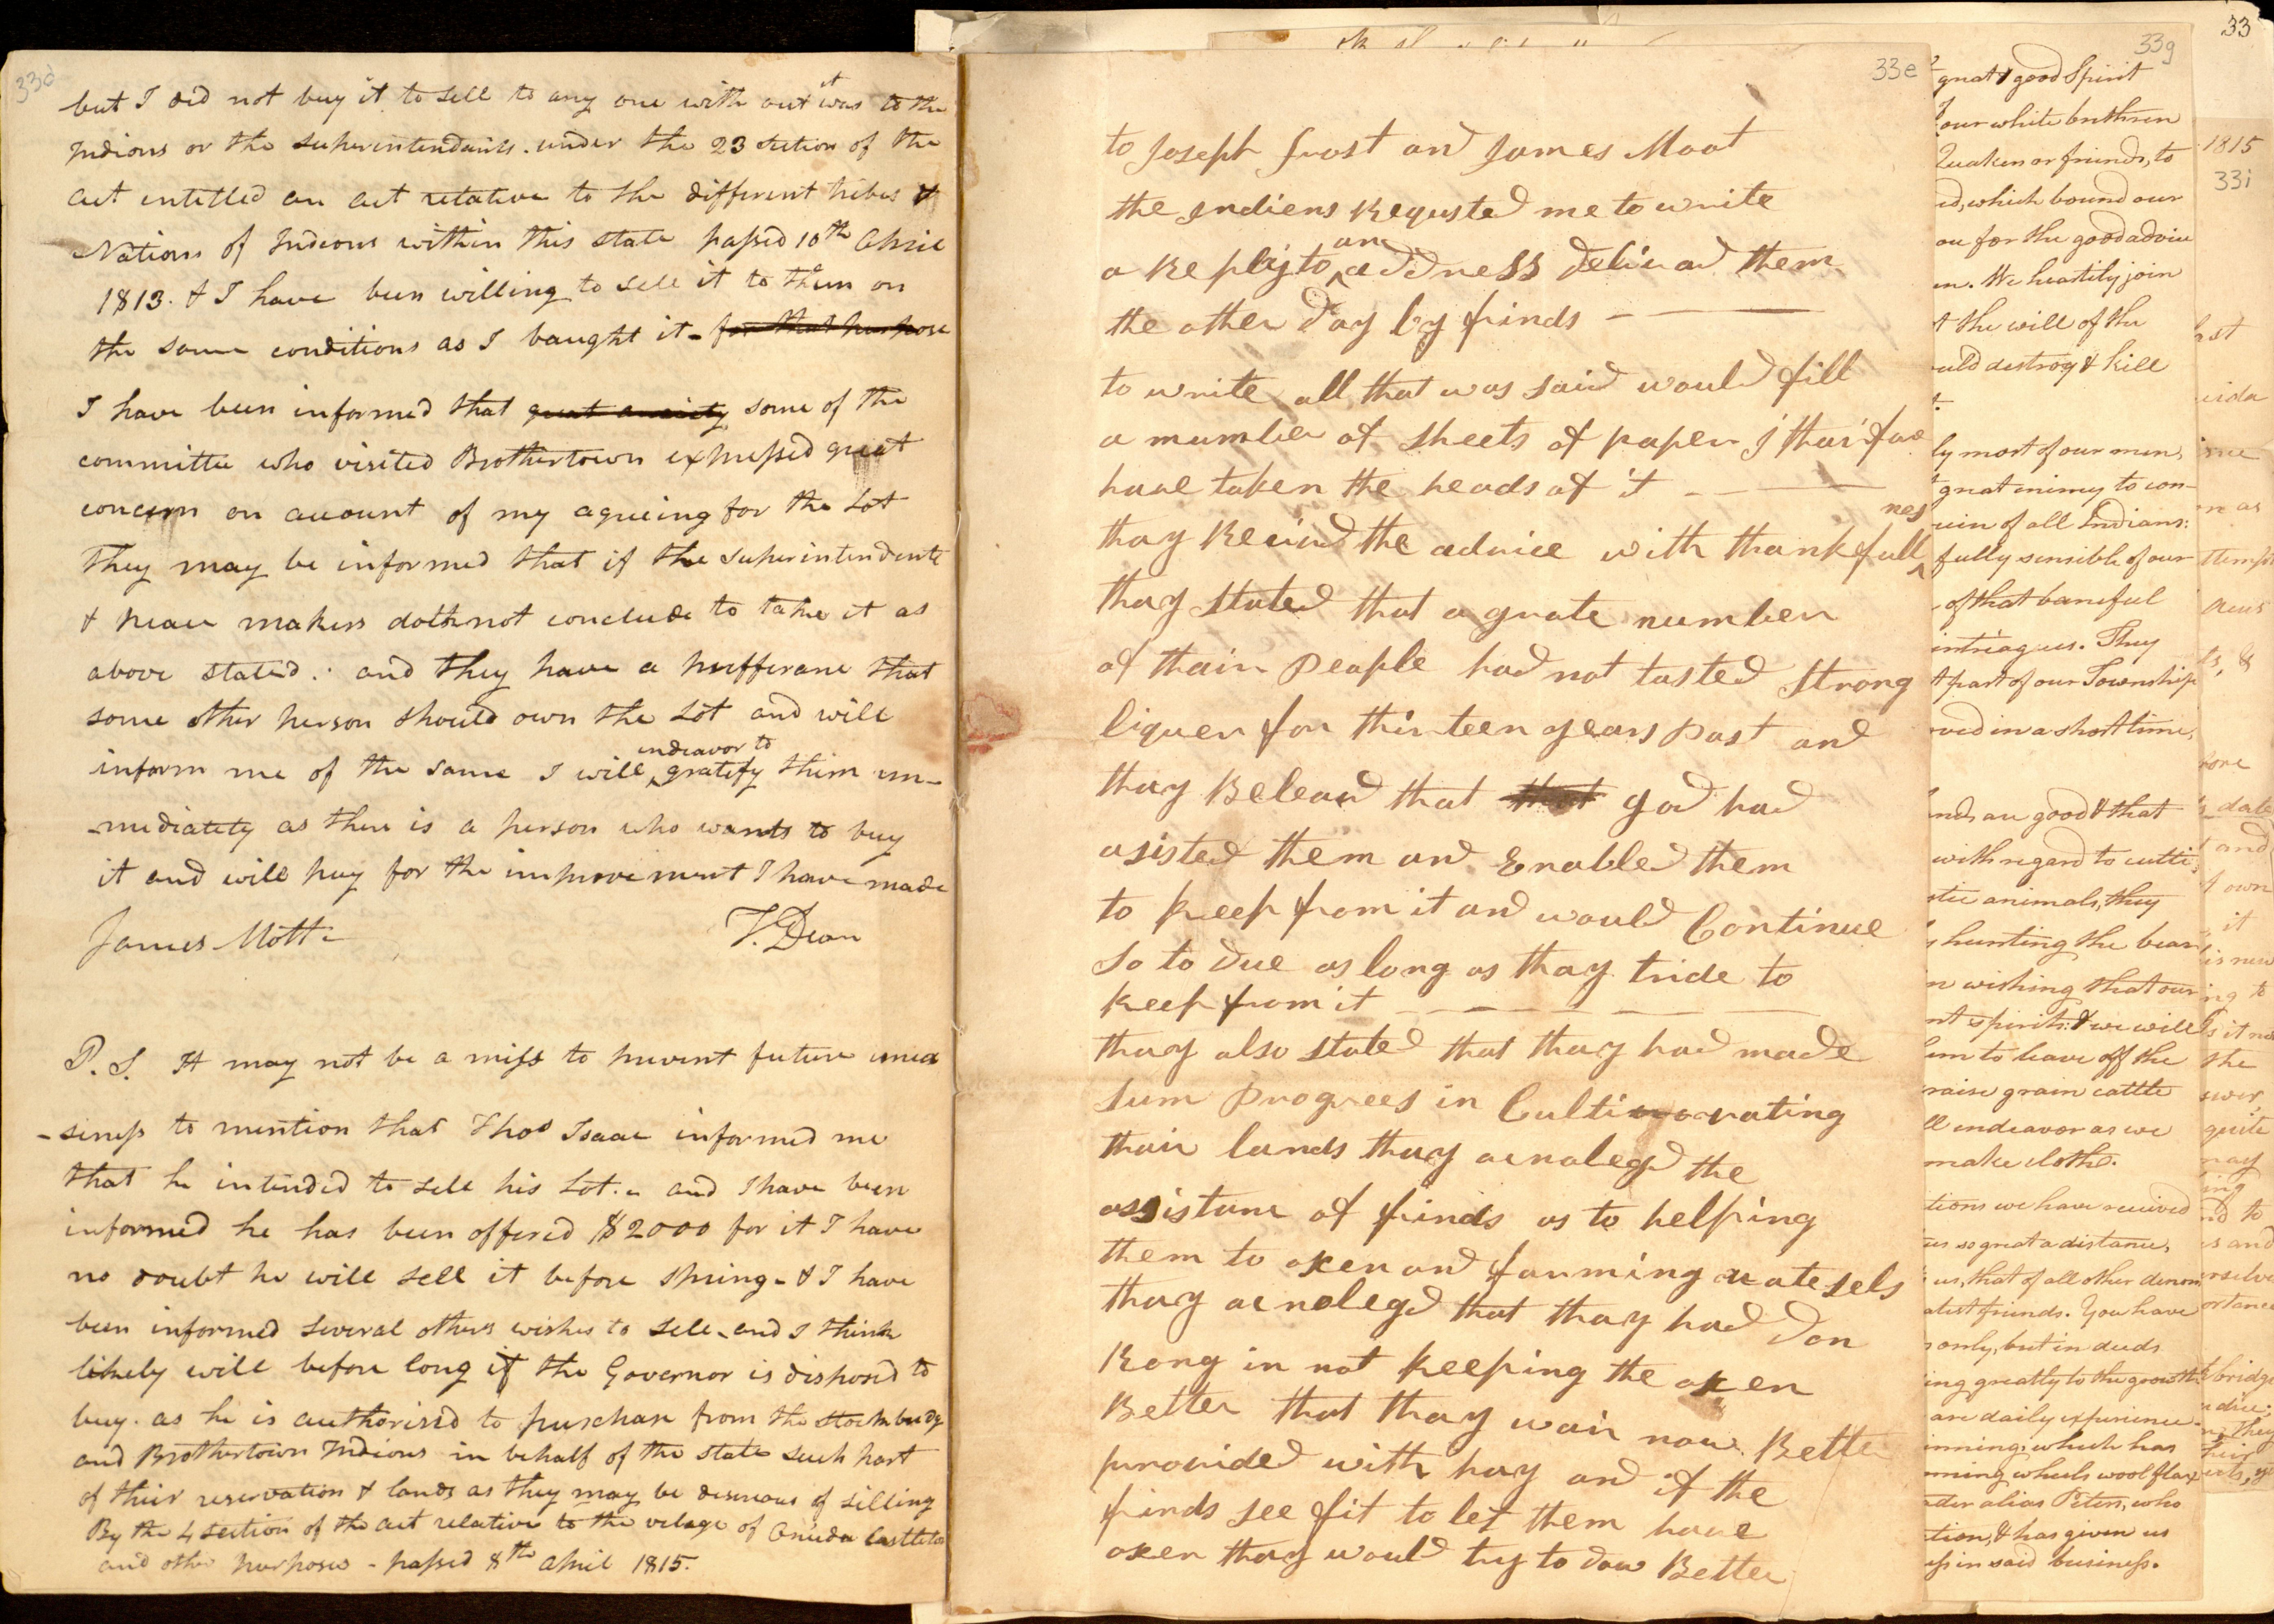 33d
but I did not buy it to sell to any one with out it was to the
Indions or the superintendants. under the 23 section of the
act intitled an act relative to the different tribes &
Nations of Indions within this state passed 10th April
1813. & I have been willing to sell it to them on
the same conditions as I baught it - for that purpose
I have been informed that great anxiety some of the
committee who visited Brothertown expressed great
concern on account of my agreeing for the Lot
They may be informed that if the superintendents
& peace makers doth not conclude to take it as
above stated : and they have a prefferane that
some other person should own the Lot and will
inform me of the same I will endeavor to gratify them im-
-mediately as there is a person who wants to buy
it and will pay for the improvement I have made
James Mott -
T. Dean
P.S. It may not be a miss to prevent future unea
-siness to mention that Thos Isaac informed me
that he intended to sell his Lot. - and I have been
informed he has been offered $2000 for it I have
no doubt he will sell it before spring - & I have
been informed several others wishes to sell - and I think
likely will before long if the Governor is disposed to
buy. as he is authorised to purchase from the Stockbridge
and Brothertown Indions in behalf of the state such part
of their reservation & lands as they may be desirous of silling
By the 4 section of the act relative to the velage of Oneida Castleton
and other purposes - passed 8th april 1815.
33e
to Joseph frost and James Moat
the Indiens Requsted me to write
a Reply to an addness deliuad them
the other day by frinds - — —
to write all that was said would fill
a mumber of sheets of paper I tharfoe
haue taken the heads of it - — —
thay Receiud the aduice with thankfullnes
thay stated that a grate number
of thair People had not tasted strong
liquer for thirteen years past and
thay Beleaud that that god had
asisted them and Enabled them
to keep from it and would Continue
So to due as long as thay tride to
keep from it - — — —
thay also stated that thay had made
sum Progrees in Cultiuorating
thair lands thay acnolegd the
assistanc of frinds as to helping
them to oxen and farming uatesels
thay acnolegd that thay had don
Rong in not keeping the oxen
Better that thay wair now Bette
prouided with hay and if the
frinds see fit to let them haue
oxen thay would try to dow Better
33g
great & good Spirit
our white brethren
Quakers or friends, to
ed, which bound our
ou for the good advice
en. We heartily join
t the will of the
uld destroy & kill
ly most of our men,
great enimy to con-
ruin of all Indians:
fully sensible of our
of that baneful
intriagues. They
t part of our Township
ved in a short time,
nds are good & that
with regard to culti-
stic animals, they
y hunting the bear
n wishing that our
nt spirits: & we will
hem to leave off the
raise grain cattle
ll endeavor as we
make cloths.
tions we have received
us so great a distance,
us, that of all other denom
atest friends. You have
s only, but in deeds
ing greatly to the growth
are daily experience
inning, which has
nning wheels wool flax
nder alias Peters, who
tion, & has given us
ess in said business.
33
1815
33i
ast
eida
me
n as
ttempt
ts, &
fore
date
t and
t own
it
is new
ing to
s it no
the
swer
quite
may
ing
nd to
s and
rselve
ortance
bridge
they
their